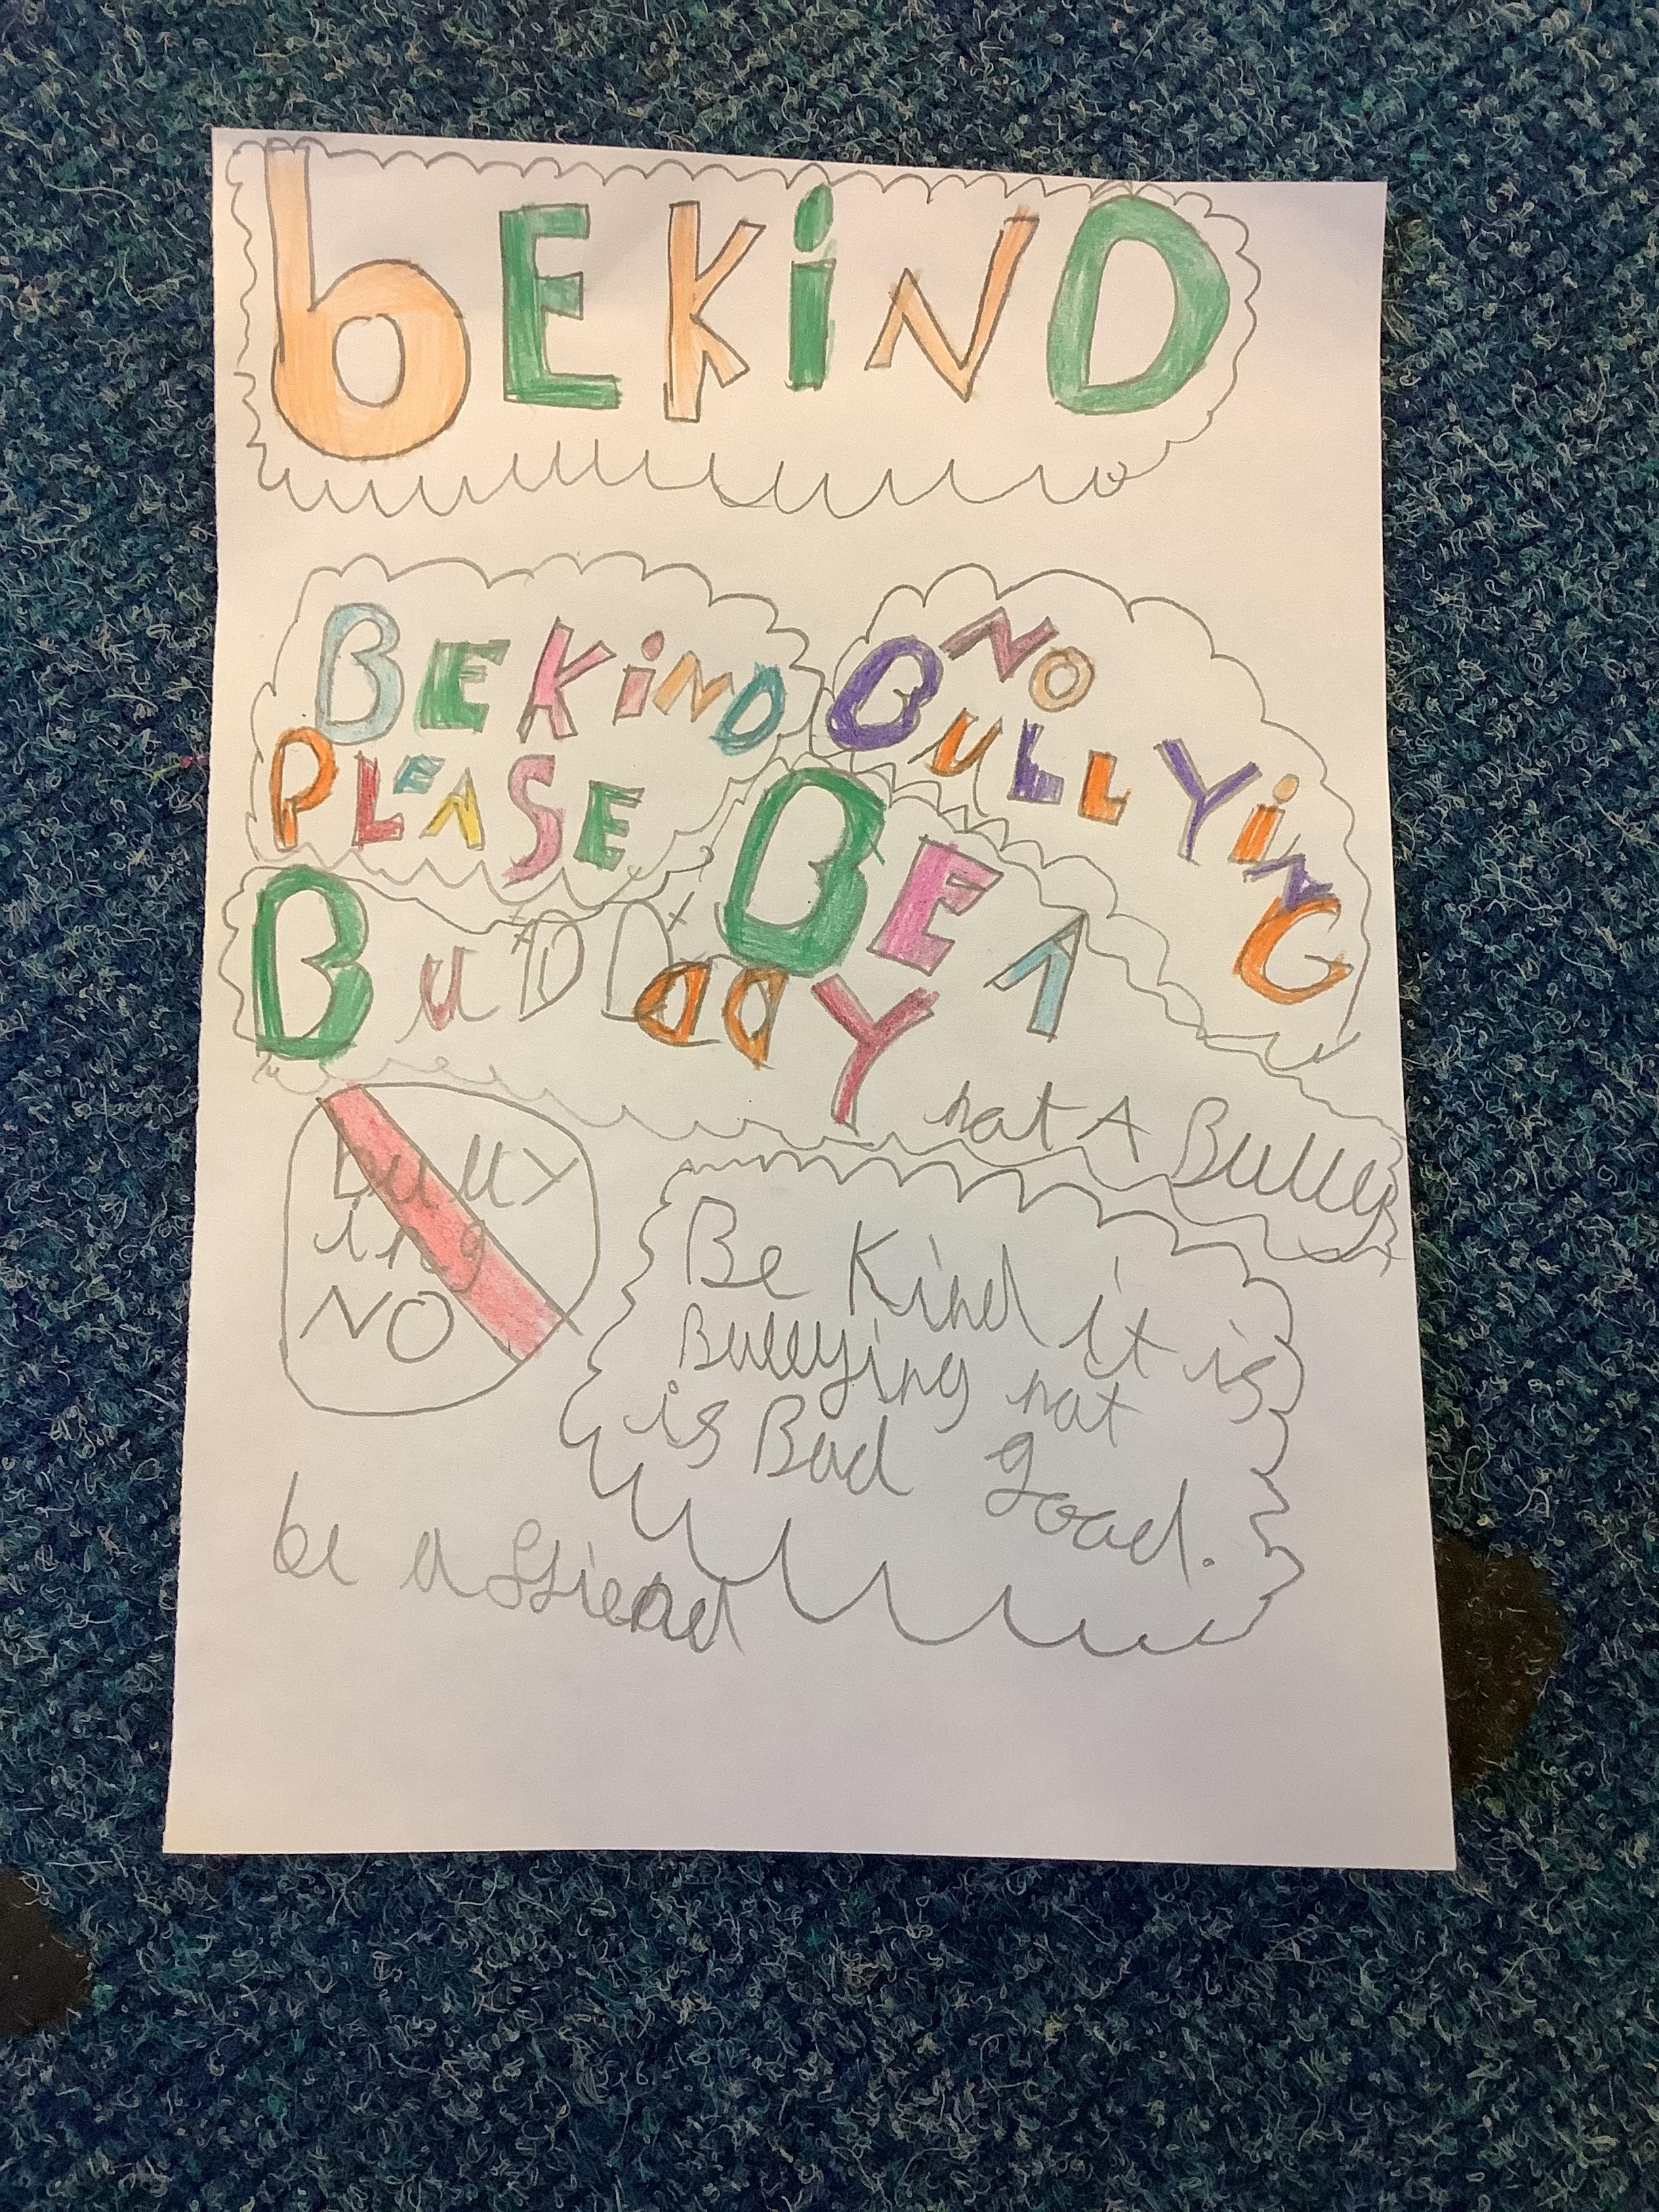 bEKiND
BEKiND
PLEASE
NO
BULLYiNG
BE A
BuDDY
not A Bully
bully
ing
NO
Be Kind it is
Bullying not
is Bad good.
be a friend